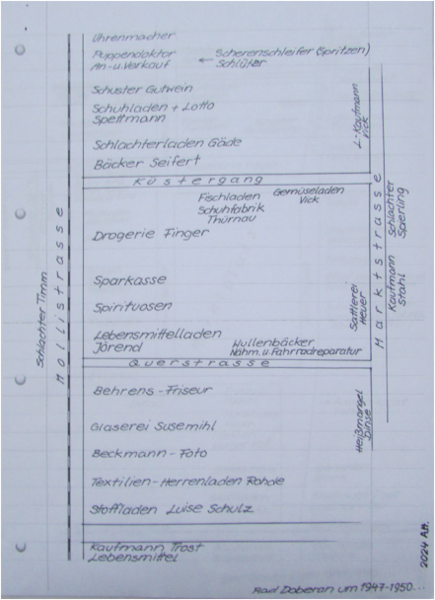 Uhrenmacher
Puppendoktor
An- u. Verkauf
← Scherenschleifer (Spritzen)
Schlüter
Schuster Gutwein
Schuhladen + Lotto
Spettmann
Schlachterladen Gäde
Bäcker Seifert
L-Kaufmann
Vick
Küstergang
Fischladen
Schuhfabrik
Thürnau
Gemüseladen
Vick
Drogerie Finger
Sparkasse
Spirituosen
Lebensmittelladen
Jörend
Wullenbäcker
Nähm. u. Fahrradreparatur
Sattlerei
Heuer
Marktstrasse
Schlachter
Spierling
Kaufmann
Stahl
Schlachter Timm
Mollistrasse
Querstrasse
Behrens - Friseur
Glaserei Susemihl
Beckmann - Foto
Textilien - Herrenladen Rohde
Stoffladen Luise Schulz
Heißmangel
Dinse
Kaufmann Trost
Lebensmittel
2024 A.H.
Bad Doberan um 1947-1950...